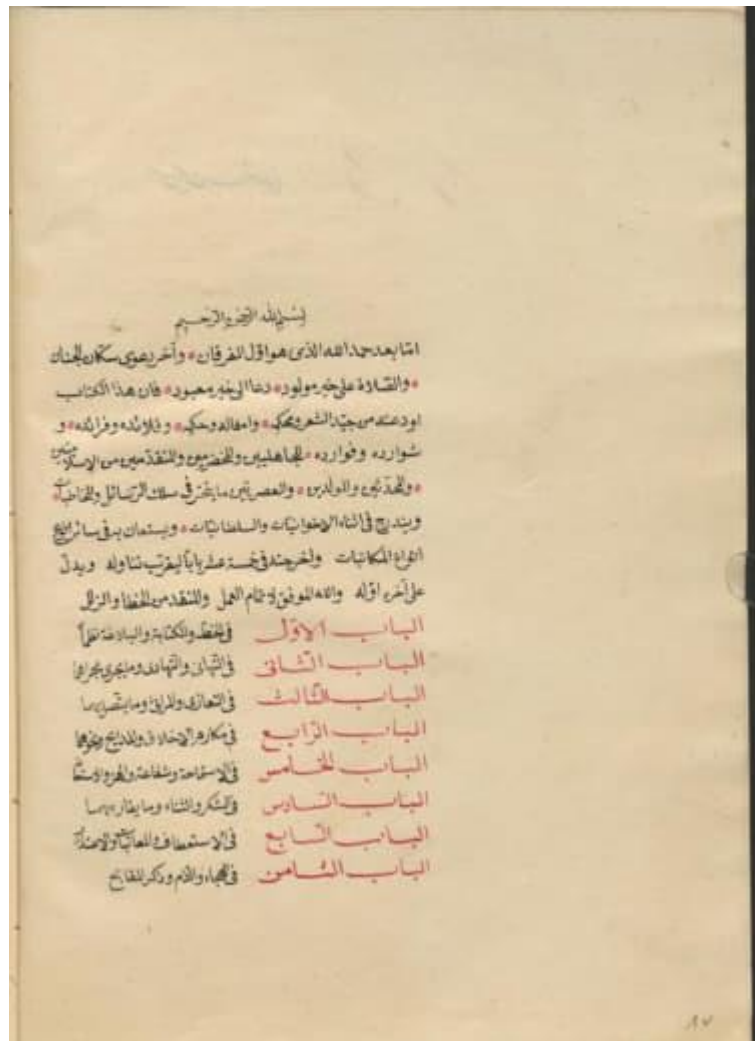 بسم الله الرحمن الرحيم
امّا بعد حمد الله الذى هو اوّل الفرقان * وآخر دعوى سكّان الجنان
* والصّلاة على خير مولود * دعا الى خير معبود * فان هذا الكتاب
اودعته من جيّد الشعر ومحكمه * وامثاله وحكمه * وقلائده وفرائده * و
شوارده وفوارده * للجاهليين والمخضرمين والمتقدّمين من الاسلاميين
* والمحدثين والمولدين * والعصريّين ما ينخرط فى سلك الرّسائل والمخاطبات
ويندرج فى اثناء الاخوانيّات والسلطانيّات * ويستعان به فى سائر
انواع المكاتبات واخرجته فى خمسة عشر باباً ليقرب تناوله ويدلّ
على آخره اوّله والله الموفق لاتمام العمل والمنقذ من الخطا والزلل
الباب الاوّل فى الخط والكتابة والبلاغة نظماً
الباب الثّانى فى التّهانى والتّهادى وما يجرى مجراها
الباب الثّالث فى التعازى والمراثى وما يتّصل بهما
الباب الرّابع فى مكارم الاخلاق والمديح ونحوهما
الباب الخامس فى الاستماحة وشفاعة والهز
الباب السّادس فى الشكر والثناء وما يقاربهما
الباب السّابع فى الاستعطاف والمعاتبات والاعتذار
الباب الثّامن فى الهجاء والذّم وذكر المقابح
٨٧